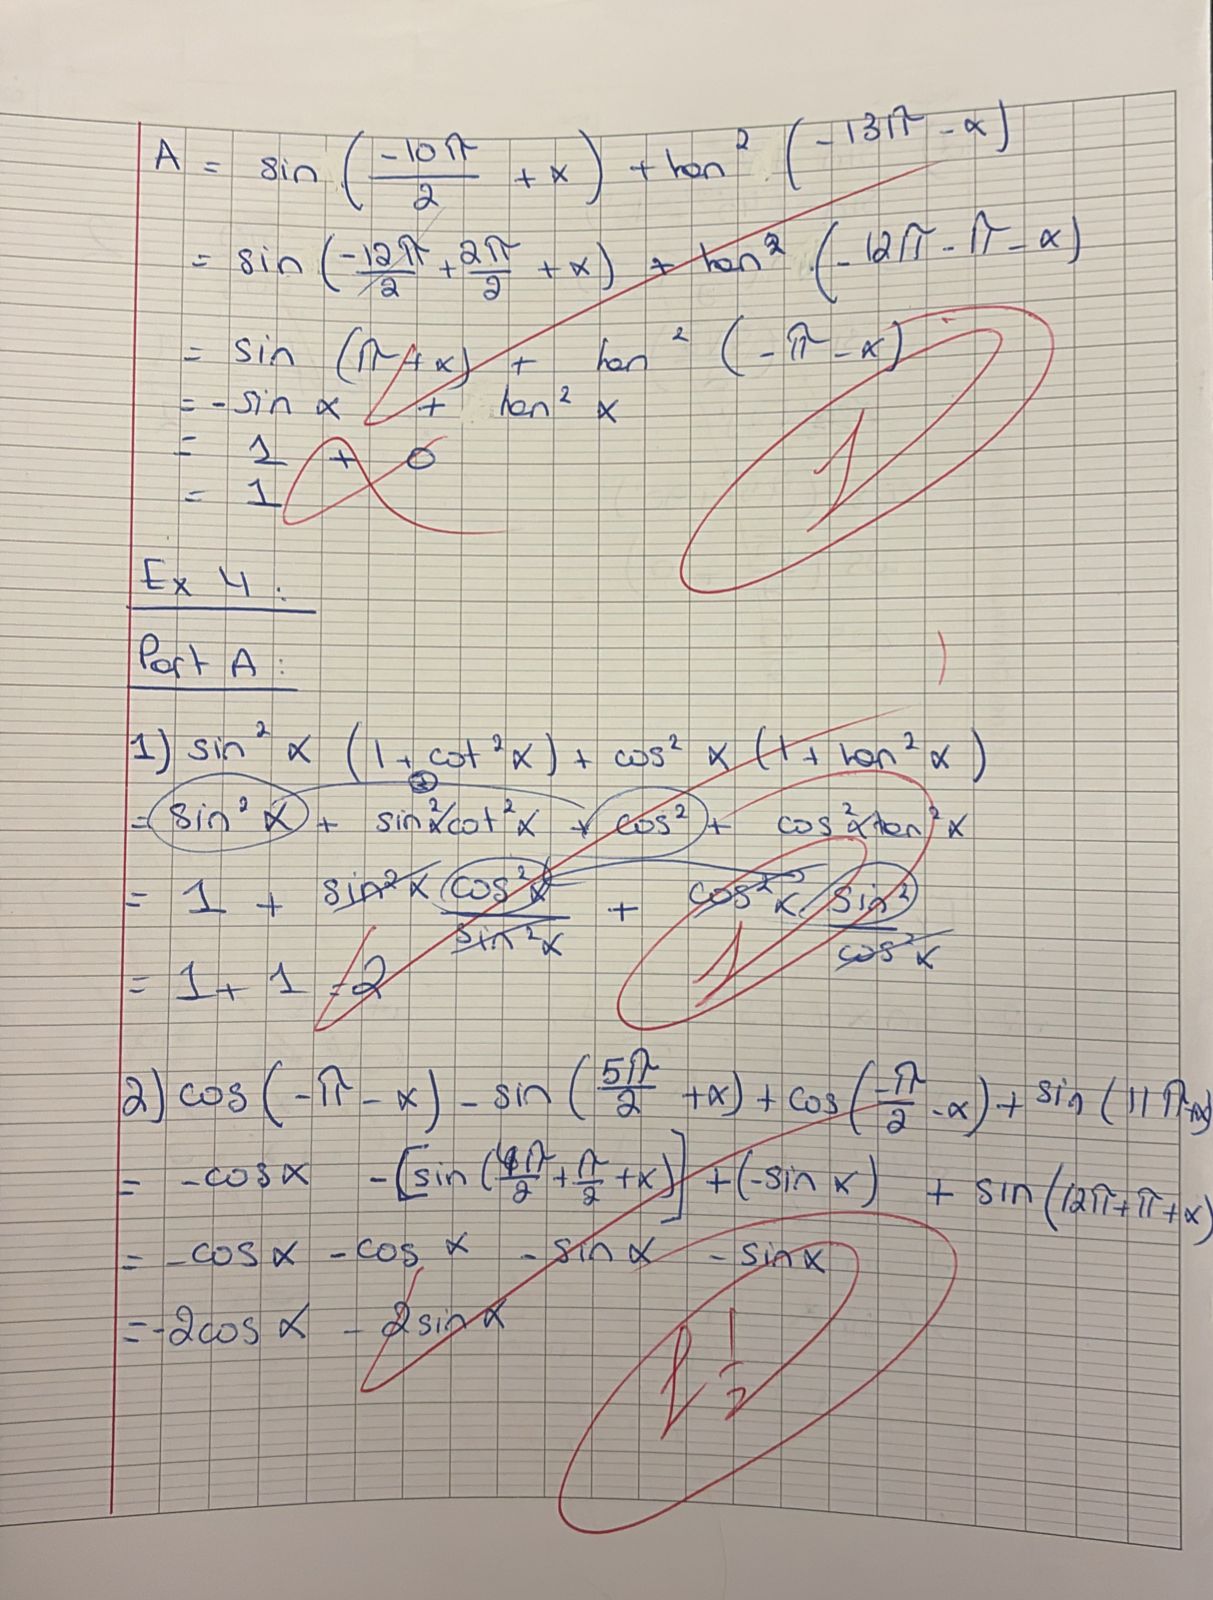 A = sin (-10π/2 + x) + tan² (-13π - α)
= sin (-12π/2 + 2π/2 + α) + tan² (-12π - π - α)
= sin (π + α) + tan² (-π - α)
= -sin α + tan² α
= 1 + 0
= 1
1
Ex 4 :
Part A :
1) sin² α (1 + cot² α) + cos² α (1 + tan² α)
= sin² α + sin² α cot² α + cos² + cos² α tan² α
= 1 + sin² α cos² α / sin² α + cos² α sin² / cos² α
1
= 1 + 1 = 2
2) cos (-π - α) - sin (5π/2 + α) + cos (-π/2 - α) + sin (11π + α)
= -cos α - [sin (4π/2 + π/2 + α)] + (-sin α) + sin (12π + π + α)
= -cos α - cos α - sin α - sin α
= -2cos α - 2sin α
1 1/2